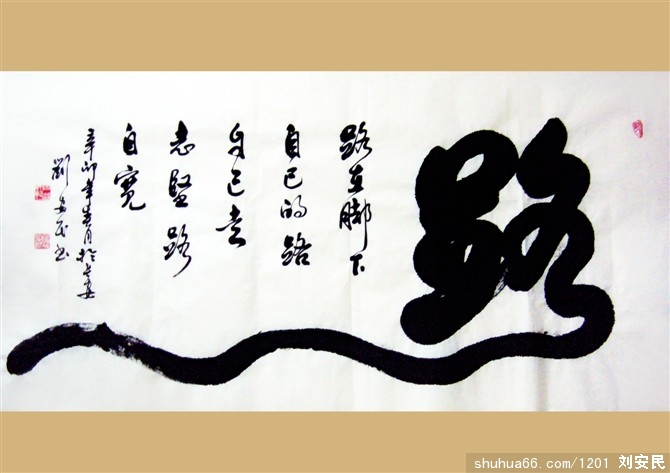 路
路在脚下
自己的路
自己走
志坚路
自宽
辛卯年春月於长安
刘安民书
shuhua66.com/1201 刘安民